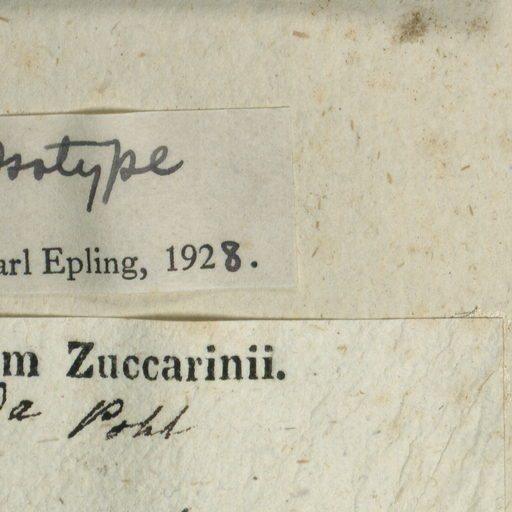 sotype
arl Epling, 1928.
m Zuccarinii.
a Pohl